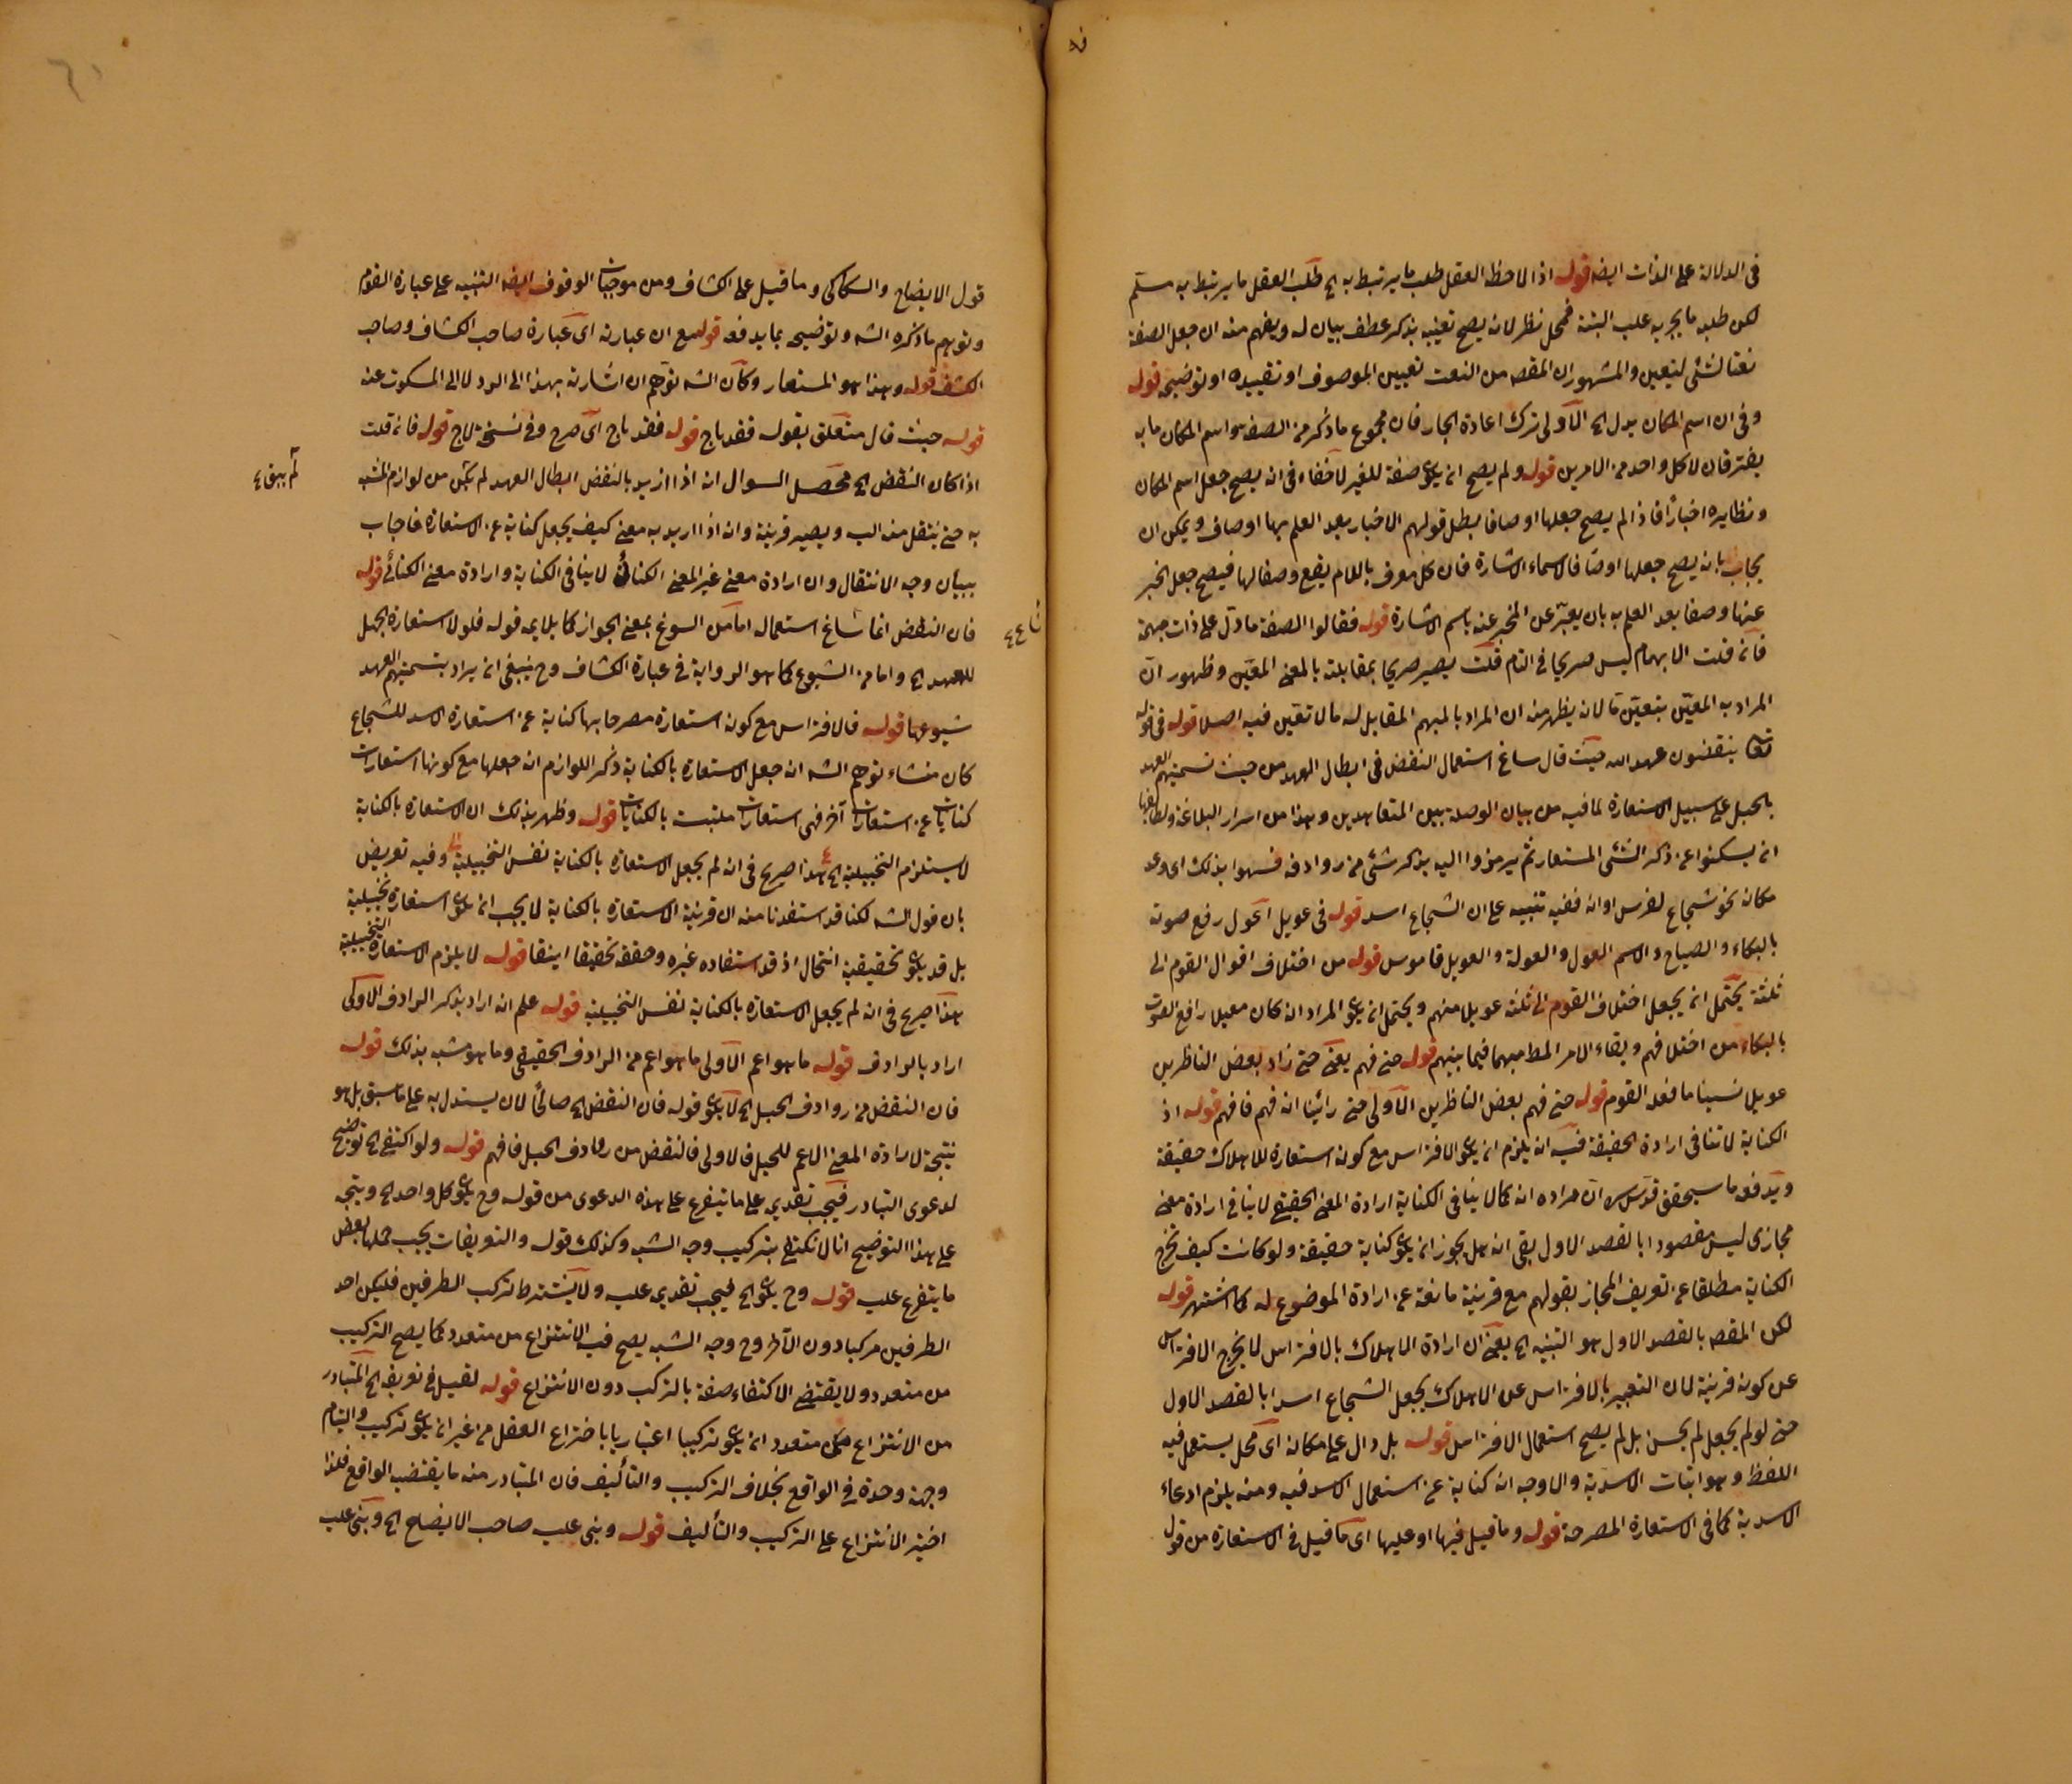 في الدلالة على الذات ايضه قوله اذا لاحظ العقل طلب ما يرتبط به اه طلب العقل ما يرتبط به مسلم
لكن طلبه ما يجريه عليه البتة فمحل نظر لانه يصح تعيينه بذكر عطف بيان له ويفهم منه ان جعل الصفة
نعتا لشئ لتعيين والمشهور ان المقصه من النعت تعيين الموصوف او تقييده او توضيحه قوله
وفى ان اسم المكان يدل اه الاولى ترك اعادة الجار فان مجموع ما ذكر من الصفة هو اسم المكان ما به
يفترقان لا كل واحد من الامرين قوله ولم يصح ان يكون صفة للغير لا خفاء فى انه يصح جعل اسم المكان
ونظايره اخبارا فاذا لم يصح جعلها اوصافا بطل قولهم الاخبار بعد العلم بها اوصاف ويمكن ان
يجاب بانه يصح جعلها اوصافا لاسماء الاشارة فان كل معرف باللام يقع وصفا لها فيصح جعل الخبر
عنها وصفا بعد العلم به بان يعبر عن المخبر عنه باسم الاشارة قوله فقالوا الصفة ما دل على ذات مبهمة
فان قلت الابهام ليس صريحا في التام قلت يصير صريحا بمقابلته بالمعنى المعين وظهور ان
المراد به المعين بتعين ما لانه يظهر منه ان المراد بالمبهم المقابل له ما لا تعين فيه اصلا قوله فى قوله
تعا ينقضون عهد الله حيث قال ساغ استعمال النقض فى ابطال العهد من حيث تسميتهم العهد
بالحبل على سبيل الاستعارة لما فيه من بيان الوصلة بين المتعاهدين وهذا من اسرار البلاغة ولطائفها
ان يسكتوا عن ذكر الشئ المستعار ثم يرمزوا اليه بذكر شئ من روادفه فنبهوا بذلك اى وعد
مكانه نحو شجاع يفترس اقرانه ففيه تنبيه على ان الشجاع اسد قوله فى عويل اعول رفع صوته
بالبكاء والصياح والاسم العول والعولة والعويل قاموس قوله من اختلاف اقوال القوم الى
ثلثة يحتمل ان يجعل اختلاف القوم الى ثلثة عويلا منهم ويحتمل ان يكون المراد ان كان معيلا رافع الصوت
بالبكاء من اختلافهم وبقاء الامر المط مبهما فيما بينهم قوله حتى فهم يعنى حتى زاد بعض الناظرين
عويل نسينا ما فعله القوم قوله حتى فهم بعض الناظرين الاولى حتى رأينا انه فهم فافهم قوله اذ
الكناية لا تنافى ارادة الحقيقة فيه ان يلزم ان يكون الافتراس مع كونه استعارة للاهلاك حقيقة
ويدفعه ما سيحقق قدس سره ان مراده انه كما لا ينافى الكناية ارادة المعنى الحقيقي لا ينافي ارادة معنى
مجازى ليس مقصودا بالقصد الاول بقى انه هل يجوز ان يكون كناية حقيقة ولو كانت كيف تخرج
الكناية مطلقا عن تعريف المجاز بقولهم مع قرينة مانعة عن ارادة الموضوع له كما اشتهر قوله
لكن المقصه بالقصد الاول هو التنبيه اه يعنى ان ارادة الاهلاك بالافتراس لا يخرج الافتراس
عن كونه قرينة لان التعبير بالافتراس عن الاهلاك يجعل الشجاع اسدا بالقصد الاول
حتى لو لم يجعل لم يحسن بل لم يصح استعمال الافتراس قوله بل دال على مكانه اى محل يستعمل فيه
اللفظ وهو اثبات الاسدية والاوجه انه كناية عن استعمال الاسد فيه ومنه يلزم ادعاء
الاسدية كما فى الاستعارة المصرحة قوله وما قيل فيها او عليها اى ما قيل فى الاستعارة من قول
قول الايضاح والسكاكى وما قيل على الكشاف ومن موجبات الوقوف ايضه التنبيه على عبارة القوم
وتوهم ما ذكره الشه وتوضيحه بما يدفعه قوله مع ان عبارته اى عبارة صاحب الكشاف وصاحب
الكشف قوله وهذا هو المستعار وكأن الشه توهم ان اشارته بهذا الى الرد لا الى المسكوت عنه
قوله حيث قال متعلق بقوله فقد باح قوله فقد باح اى صرح وفى نسخة لاح قوله فان قلت
اذا كان النقض اه محصل السوال انه اذا اريد بالنقض ابطال العهد لم يكن من لوازم المشبه
به حتى ينتقل منه اليه ويصير قرينة وانه اذا اريد به معنى كيف يجعل كناية عن الاستعارة فاجاب
ببيان وجه الانتقال وان ارادة معنى غير المعنى الكنائى لا ينافى الكناية وارادة معنى الكنائى قوله
فان النقض انما شاغ استعماله اما من السوغ بمعنى الجواز كما يلايمه قوله فلولا استعارة الحبل
للعهد اه واما من الشيوع كما هو الرواية فى عبارة الكشاف وح ينبغى ان يراد بتسميتهم العهد
شيوعها قوله فالافتراس مع كونه استعارة مصرحا بها كناية عن استعارة الاسد للشجاع
كان منشاء توهم الشه انه جعل الاستعارة بالكناية ذكر اللوازم انه جعلها مع كونها استعارات
كنايات عن استعارات آخر فهى استعارات ملتبسة بالكنايات قوله وظهر بذلك ان الاستعارة بالكناية
لا يستلزم التخييلية اه هذا صريح فى انه لم يجعل الاستعارة بالكناية نفس التخييلية وفيه تعريض
بان قول الشه لكنا قد استفدنا منه ان قرينة الاستعارة بالكناية لا يجب ان يكون استعارة تخييلية
بل قد يكون تحقيقية انتحال اذ قد استفاده غيره وحققه تحقيقا اينقا قوله لا يلزم الاستعارة التخييلية
هذا صريح فى انه لم يجعل الاستعارة بالكناية نفس التخييلية قوله علم انه اراد بذكر الرادف الاولى
اراد بالرادف قوله ما هو اعم الاولى ما هو اعم من الرادف الحقيقى وما هو مشبه بذلك قوله
فان النقض من روادف الحبل اه لا يكون قوله فان النقض اه صالحا لان يستدل به على ما سبق بل هو
نتيجة لارادة المعنى الاعم للحبل فالاولى فالنقض من روادف الحبل فافهم قوله ولو اكتفى اه توضيح
لدعوى التبادر فيجب تقديمه على ما يتفرع على هذه الدعوى من قوله وح يكون كل واحد اه ويتجه
على هذا التوضيح انا لا نكتفى بتركيب وجه الشبه وكذلك قوله والتعريفات يجب حملها بعض
ما يتفرع عليه قوله وح يكون اه فيجب تقديمه عليه ولا يشترط تركب الطرفين فليكن احد
الطرفين مركبا دون الآخر وح وجه الشبه يصح فيه الانتزاع من متعدد كما يصح التركيب
من متعدد ولا يقتضى الاكتفاء صفة بالتركب دون الانتزاع قوله لقيل فى تعريفه اه المتبادر
من الانتزاع من متعدد ان يكون تركيبا اعتباريا باختراع العقل من غير ان يكون تركيب والتيام
وجهة وحدة فى الواقع بخلاف التركيب والتأليف فان المتبادر منه ما يقتضيه الواقع فلذا
اختير الانتزاع على التركيب والتأليف قوله وبنى عليه صاحب الايضاح اه وبنى عليه